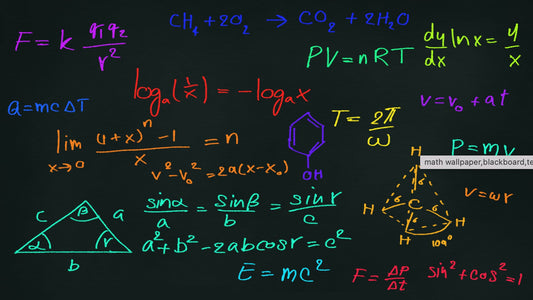 F = k q₁q₂/r²
CH₄ + 2O₂ → CO₂ + 2H₂O
PV = nRT
dy/dx ln x = y/x
logₐ(1/x) = -logₐx
Q = mcΔT
T = 2π/ω
v = v₀ + at
lim x→0 (1+x)ⁿ - 1 / x = n
v² - v₀² = 2a(x - x₀)
OH
P = mv
math wallpaper,blackboard,te
H
H C H
H
6 6 6 6
109°
v = wr
c β a
α γ
b
sinα/a = sinβ/b = sinγ/c
a² + b² - 2abcosγ = c²
E = mc²
F = ΔP/Δt
sin² + cos² = 1